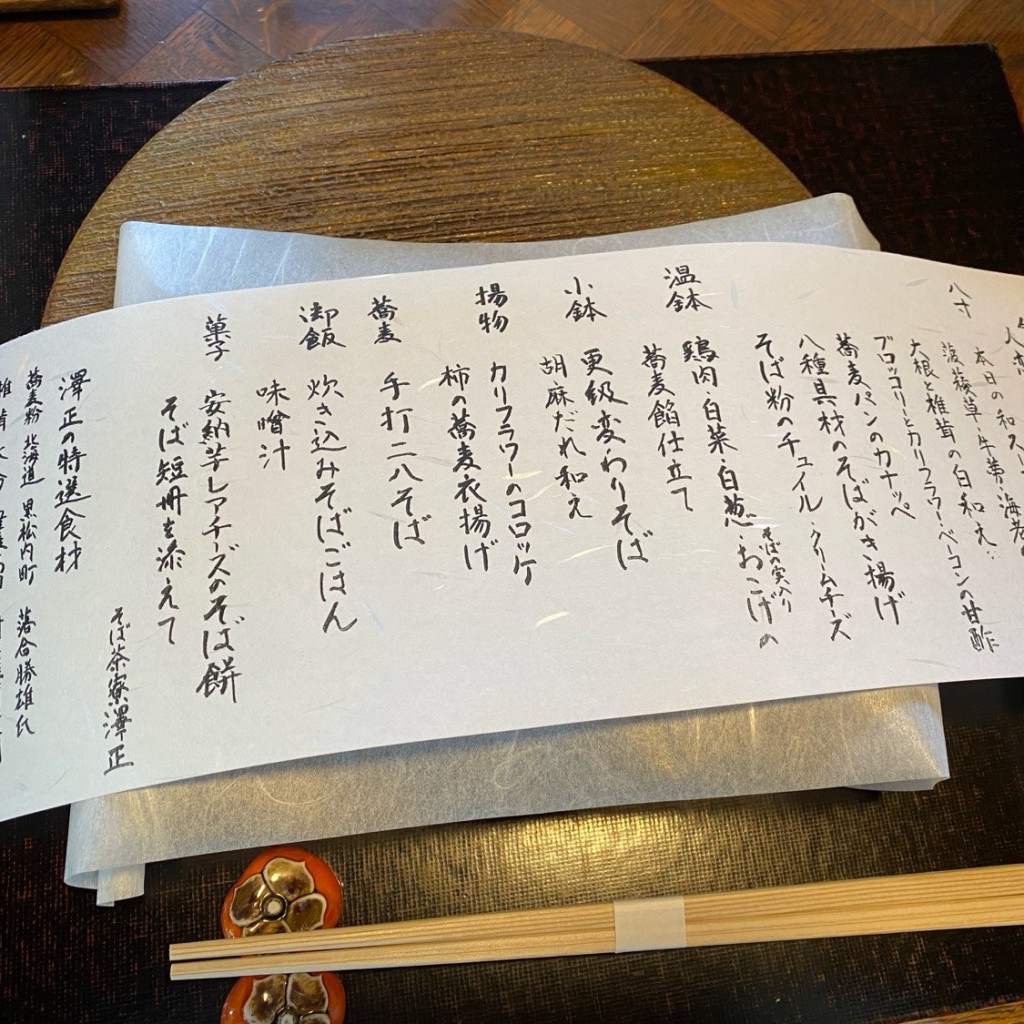 本日の和スー
菠薐草・牛蒡・海老の
八寸
大根と椎茸の白和え
ブロッコリーとカリフラワー・ベーコンの甘酢
蕎麦パンのカナッペ
八種具材のそばがき揚げ
そば粉のチュイル・クリームチーズ
温鉢
鶏肉・白菜・白葱・そばの実入りおこげの
蕎麦餡仕立て
小鉢
更級変わりそば
胡麻だれ和え
揚物
カリフラワーのコロッケ
柿の蕎麦衣揚げ
蕎麦
手打二八そば
御飯
炊き込みそばごはん
味噌汁
菓子
安納芋レアチーズのそば餅
そば短冊を添えて
そば茶寮澤正
澤正の特選食材
蕎麦粉 北海道 黒松内町 落合勝雄氏
椎茸